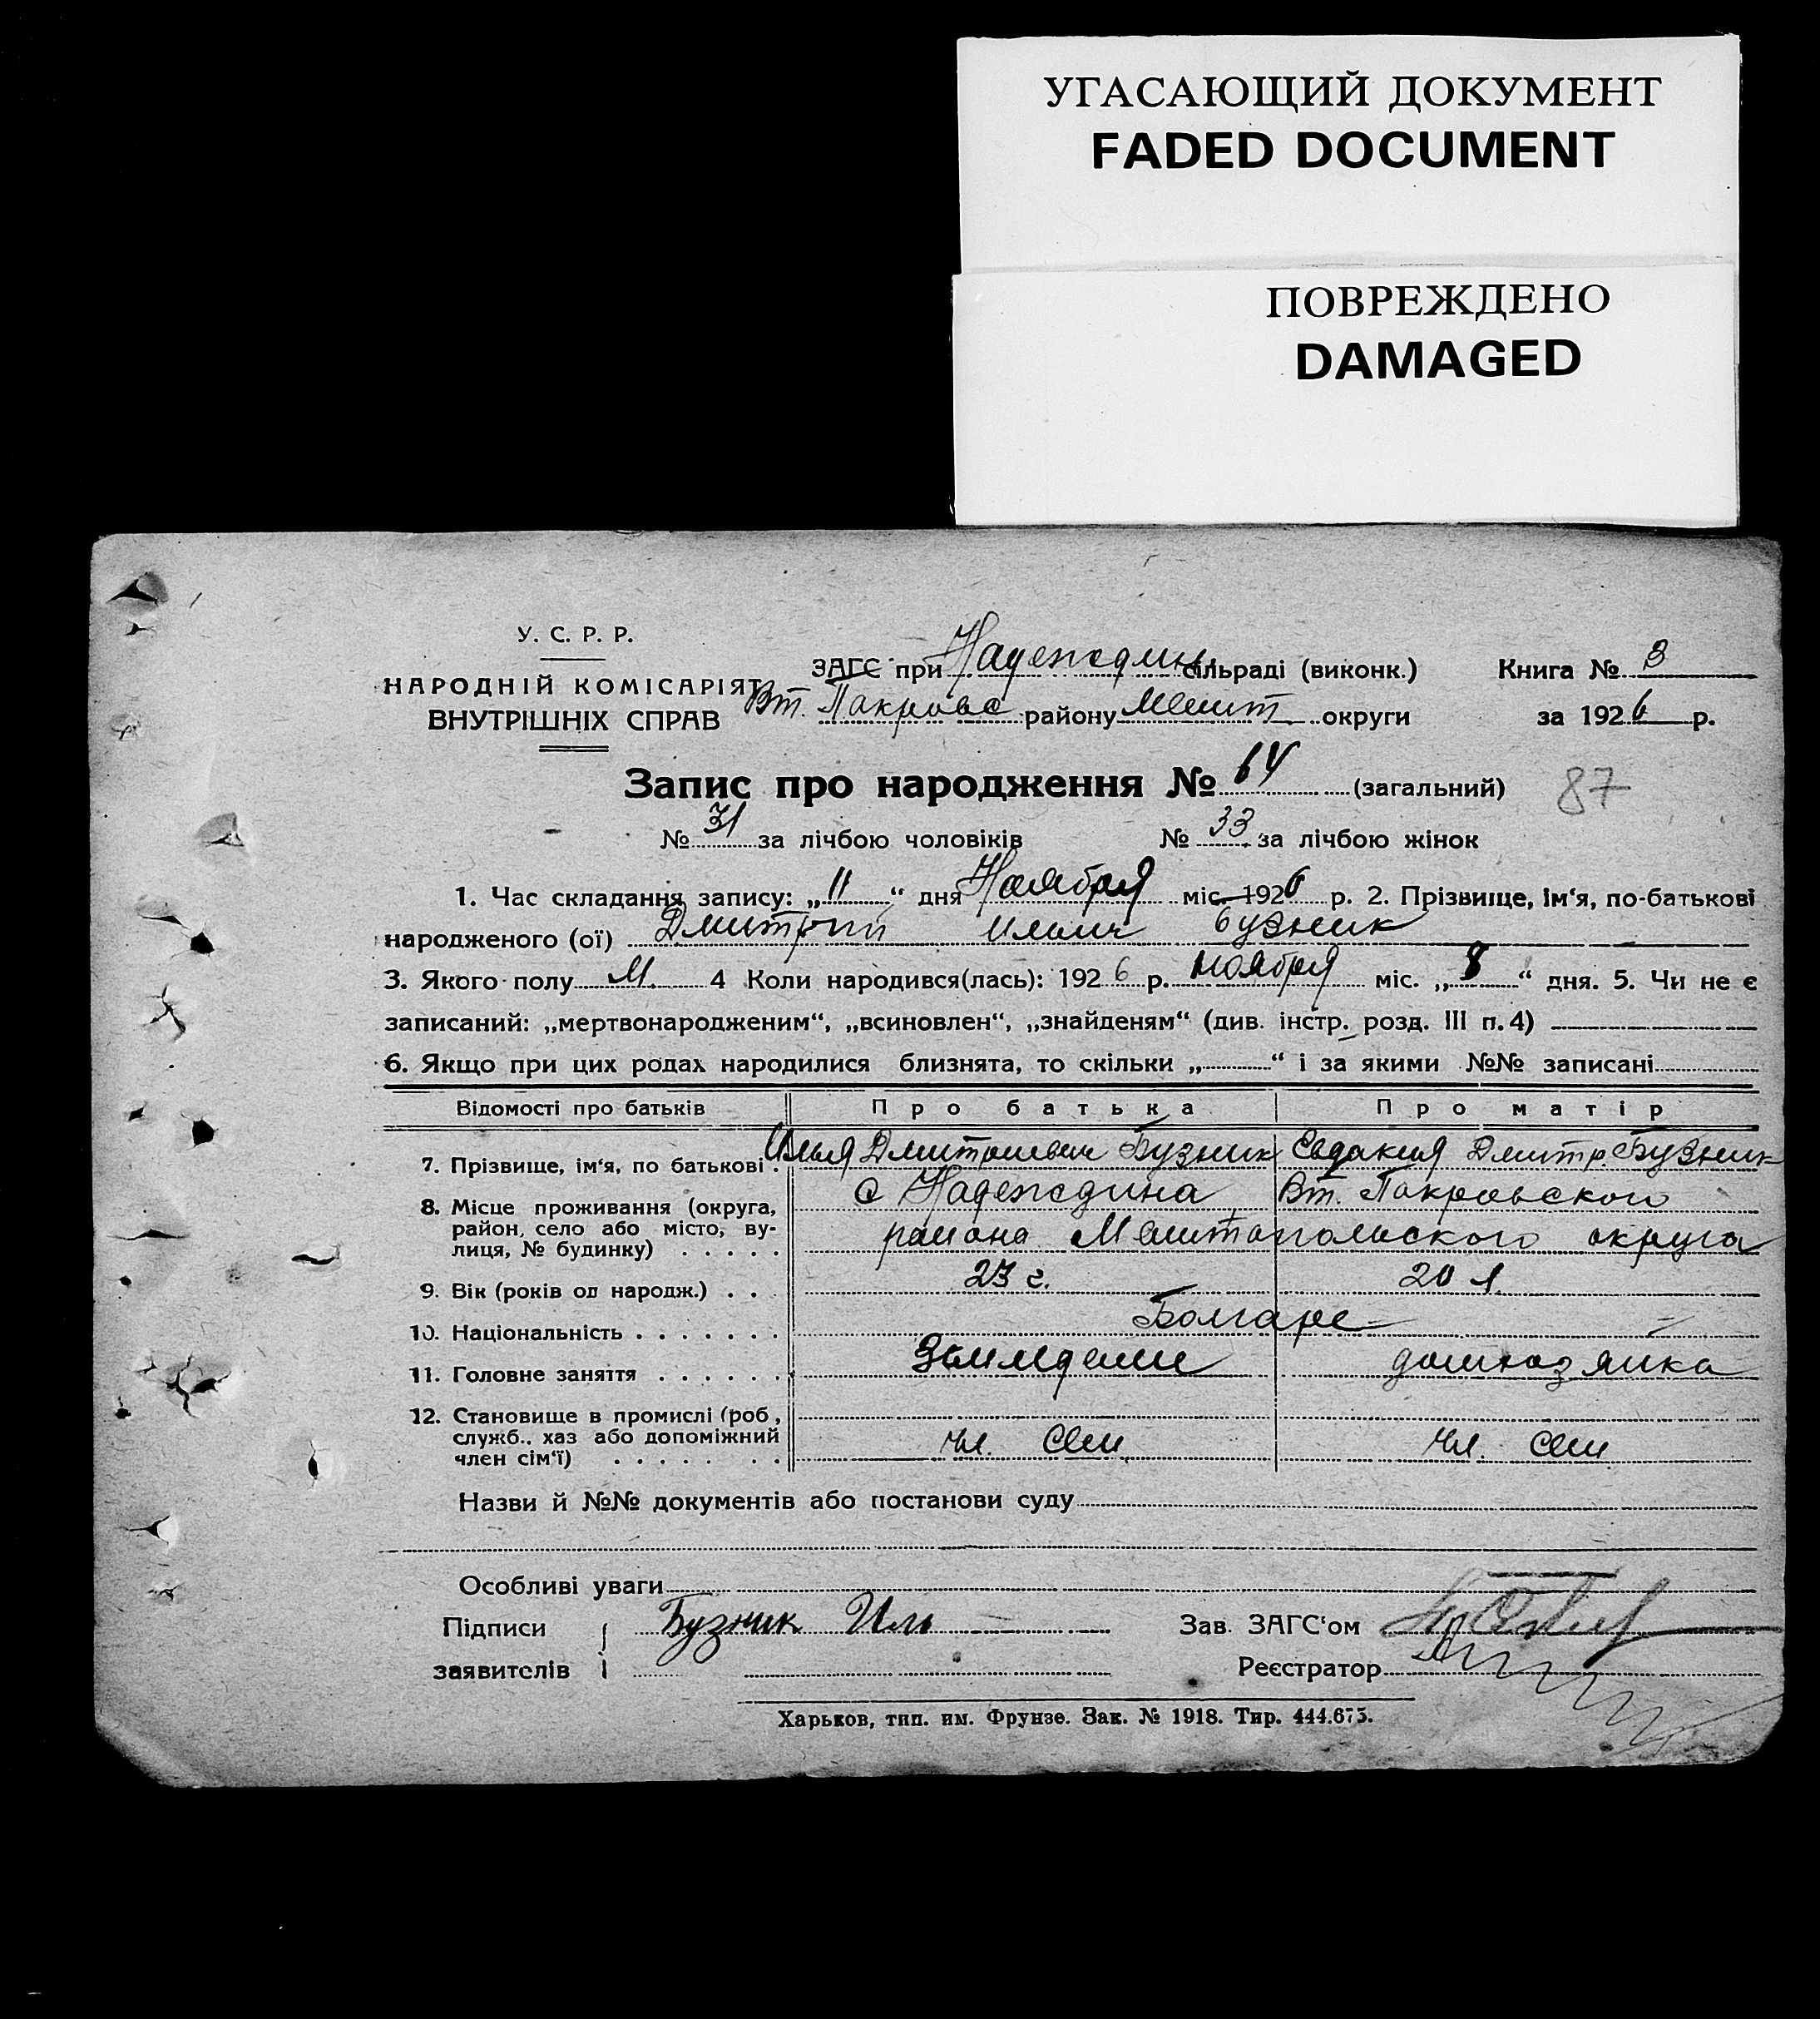 УГАСАЮЩИЙ ДОКУМЕНТ
FADED DOCUMENT
ПОВРЕЖДЕНО
DAMAGED
У. С. Р. Р.
НАРОДНІЙ КОМІСАРІЯТ
ВНУТРІШНІХ СПРАВ
ЗАГС при Надеждин. сільраді (виконк.) Книга № 3
Вт. Покровс району Мелит округи за 1926 р.
Запис про народження № 64 (загальний) 87
№ 31 за лічбою чоловіків № 33 за лічбою жінок
1. Час складання запису: „11“ дня Ноября міс. 1926 р. 2. Прізвище, ім‘я, по-батькові
народженого (ої) Дмитрий Ильич Бузник
3. Якого полу М. 4 Коли народився(лась): 1926 р. ноября міс. „8“ дня. 5. Чи не є
записаний: „мертвонародженим“, „всиновлен“, „знайденям“ (див. інстр. розд. III п. 4)
6. Якщо при цих родах народилися близнята, то скільки „ “ і за якими №№ записані
Відомості про батьків Про батька Про матір
7. Прізвище, ім‘я, по батькові. Илья Дмитриевич Бузник Евдокия Дмитр. Бузник
8. Місце проживання (округа, с Надеждина Вт. Покровского
район, село або місто, ву-
лиця, № будинку) района Мелитопольского округа
9. Вік (років од народж.) 23 г. 20 л.
10. Національність Болгаре
11. Головне заняття Земледелие домхозяйка
12. Становище в промислі (роб,
служб., хаз або допоміжний
член сім‘ї) Чл. Сем Чл. Сем
Назви й №№ документів або постанови суду
Особливі уваги
Підписи Бузник Иль Зав. ЗАГС‘ом
заявителів Реєстратор
Харьков, тип. им. Фрунзе. Зак. № 1918. Тир. 444.675.